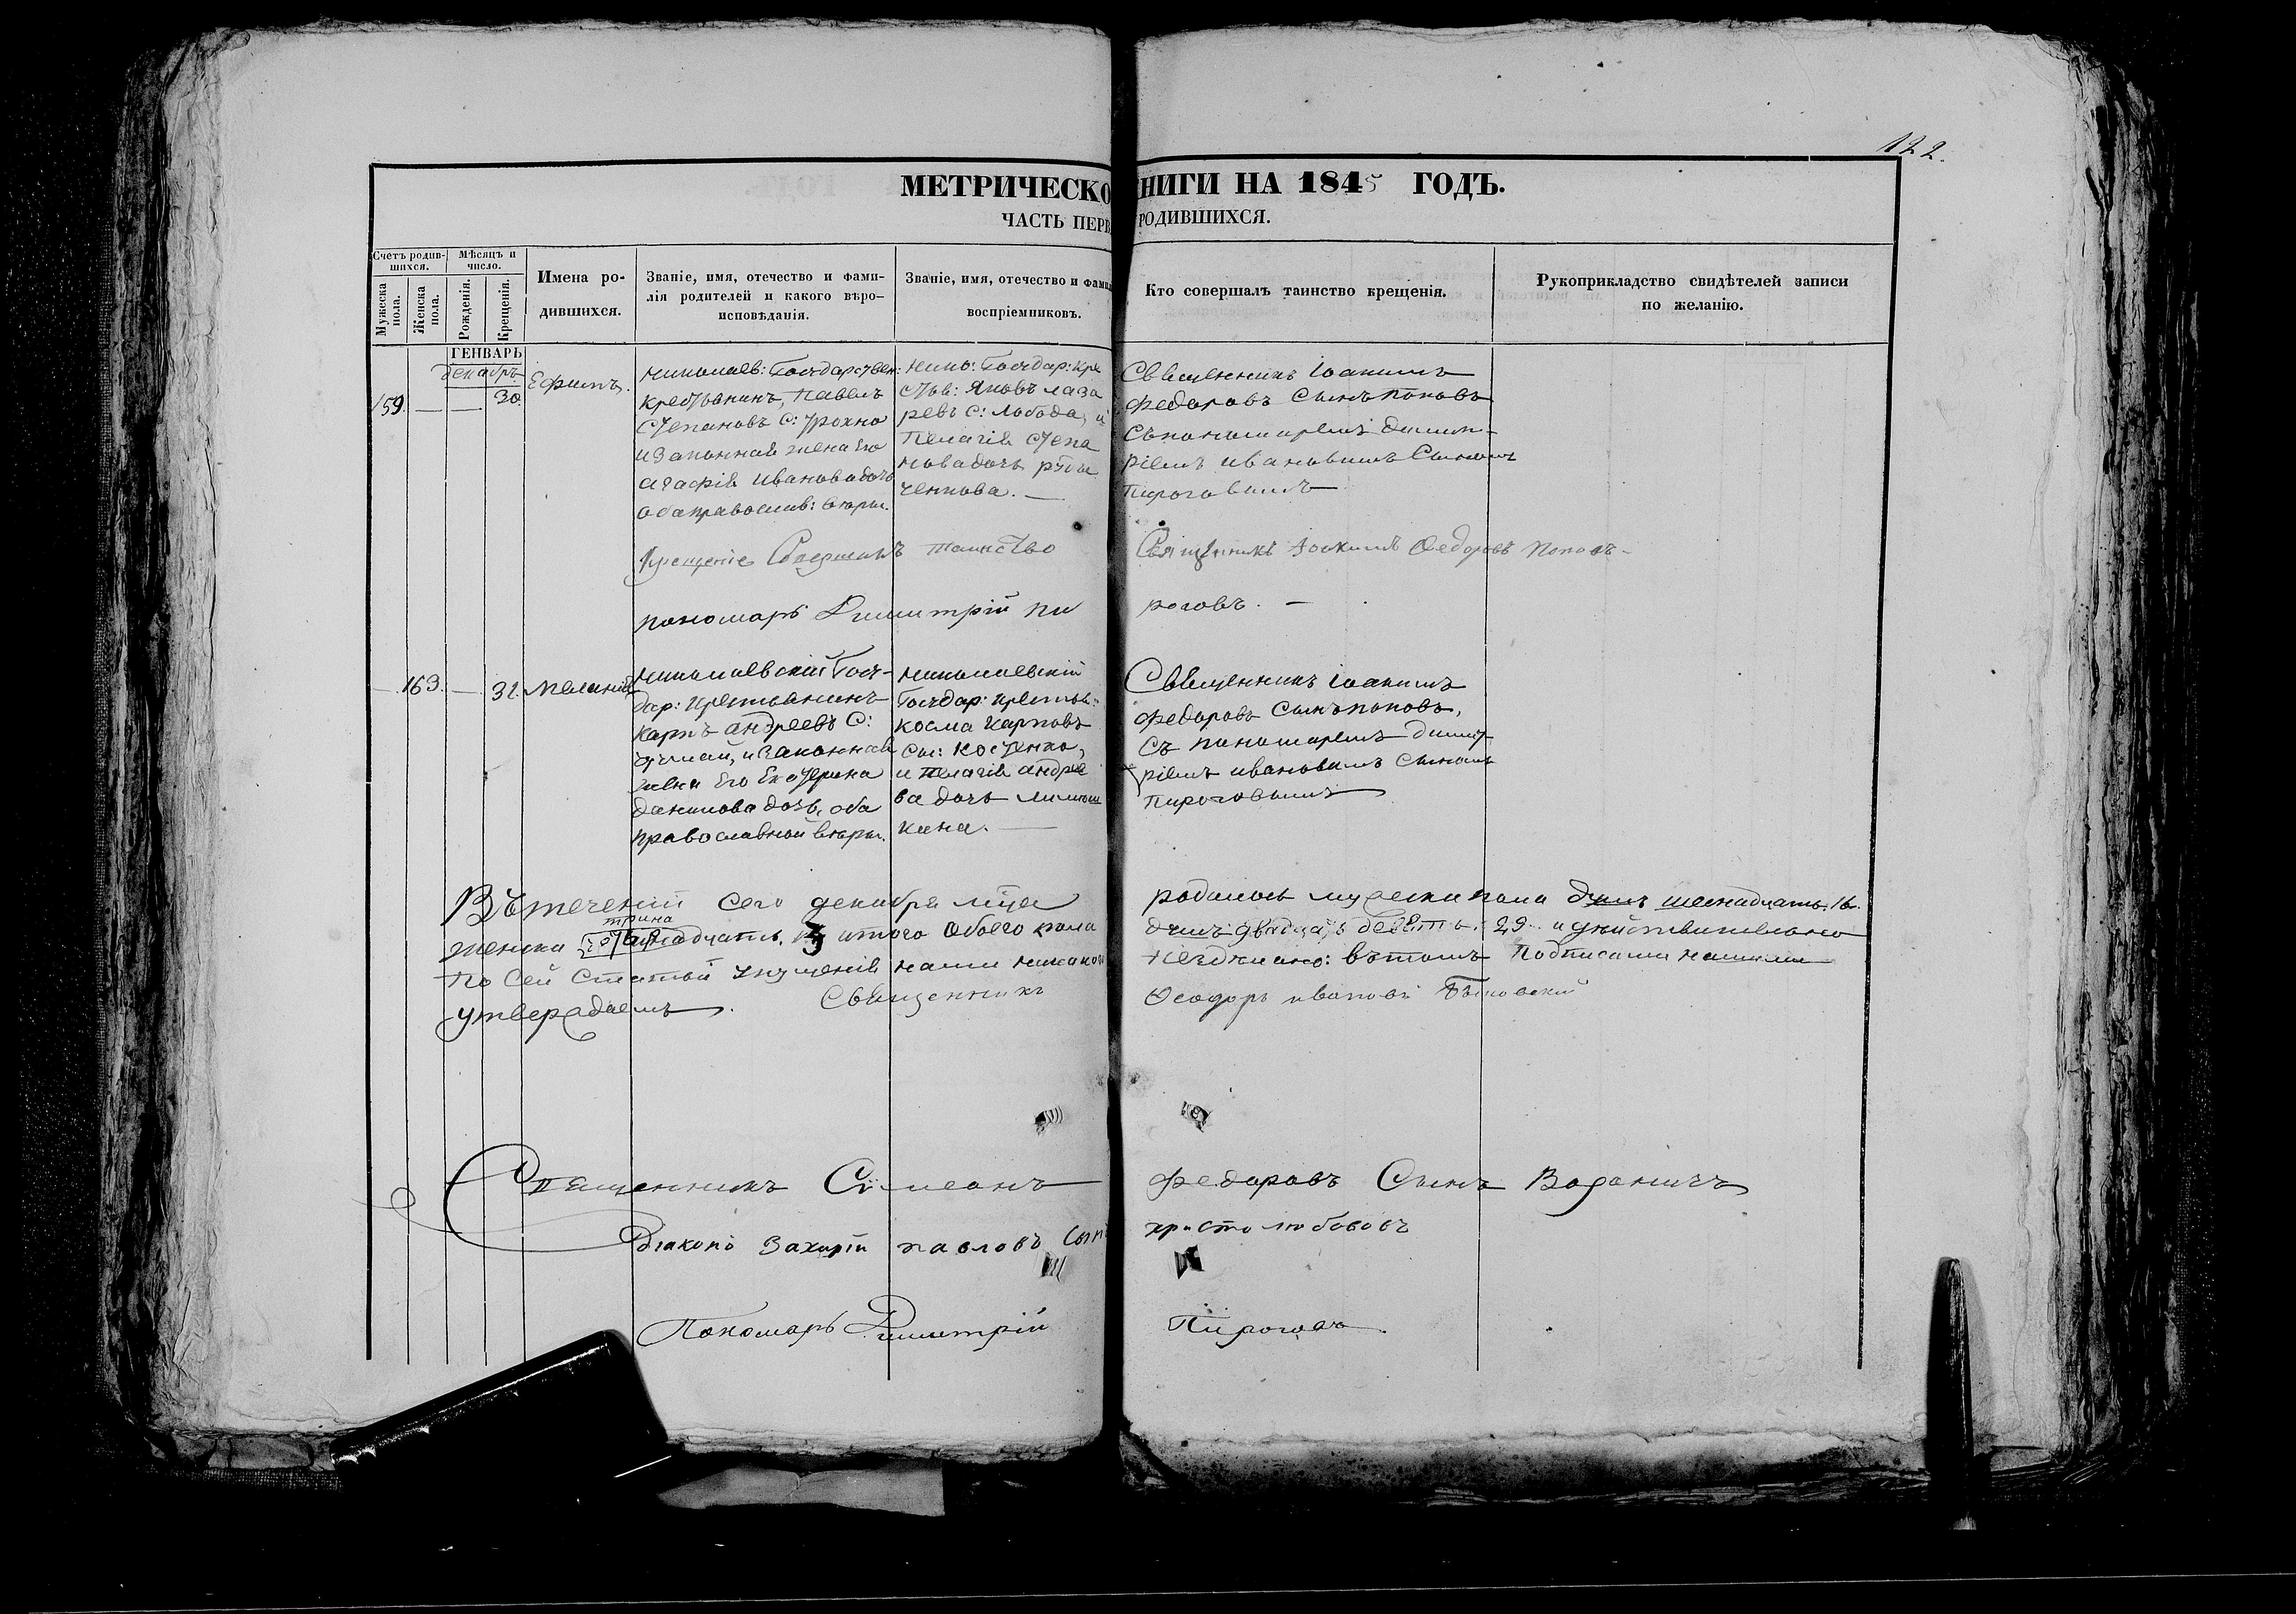 122.
МЕТРИЧЕСКО НИГИ НА 1845 ГОДЪ.
ЧАСТЬ ПЕРВ РОДИВШИХСЯ.
Счетъ родившихся.
Мужеска пола.
Женска пола.
Мѣсяцъ и число.
Рожденія.
Крещенія.
Имена ро-
дившихся.
Званіе, имя, отечество и фами-
лія родителей и какого вѣро-
исповѣданія.
Званіе, имя, отечество и фами
воспріемниковъ.
Кто совершалъ таинство крещенія.
Рукоприкладство свидѣтелей записи
по желанію.
ГЕНВАРЬ
декабрь
159. — — 30. Ефимъ.
Николаев: Государствен:
крестьянинъ, Павелъ
Степановъ С:
и законная жена его
Агафія Иванова дочь
оба православ: вѣры.
Нико: Государ: кре
стья: Яковъ Лаза
ревъ С: Лобода, и
Пелагія Степа
нова дочь
ченкова. —
Священникъ Іоакимъ
Федоровъ Сынъ Поповъ
съ пономаремъ Димит-
ріемъ Ивановымъ Сыномъ
Пироговымъ
Крещеніе Совершилъ таинство Священникъ Іоакимъ Ѳедоровъ Поповъ —
пономарь Димитрій Пи роговъ. —
— 163. — 31. Меланія
Николаевскій Госу-
дар: крестьянинъ
Карпъ Андреевъ С:
и законная
жена его Екатерина
Данилова дочь, оба
православной вѣры.
Николаевскій
Государ: крестья:
Косма Карповъ
сы: Костенко,
и Пелагія Андрее
ва дочь
кина. —
Священникъ Іоакимъ
Федоровъ Сынъ Поповъ,
съ пономаремъ Димит
ріемъ Ивановымъ Сыномъ
Пироговымъ
Въ теченіи сего декабря мца родилось мужеска пола душъ шеснадцать. 16.
трина
женска дцать. 13 итого обоего пола душъ двадцать девять. 29. и дѣйствительно
по сей статьи упущенія нами никакого несдѣлано: въ томъ подписами нашими
утверждаемъ. Священникъ Ѳеодоръ Ивановъ
Священникъ Сѵмеонъ Федоровъ Сынъ
Діаконъ Захарій Павловъ Сынъ Христолюбовъ
Пономарь Димитрій Пироговъ.